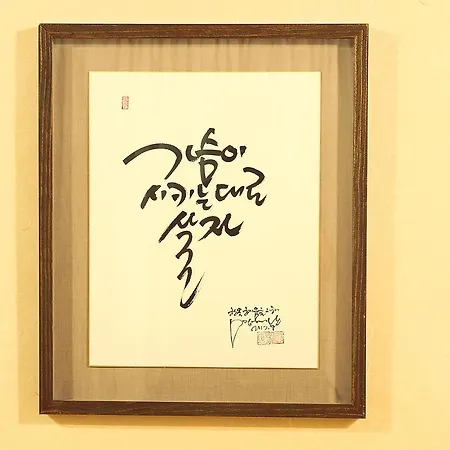 가슴이
시키는대로
살자